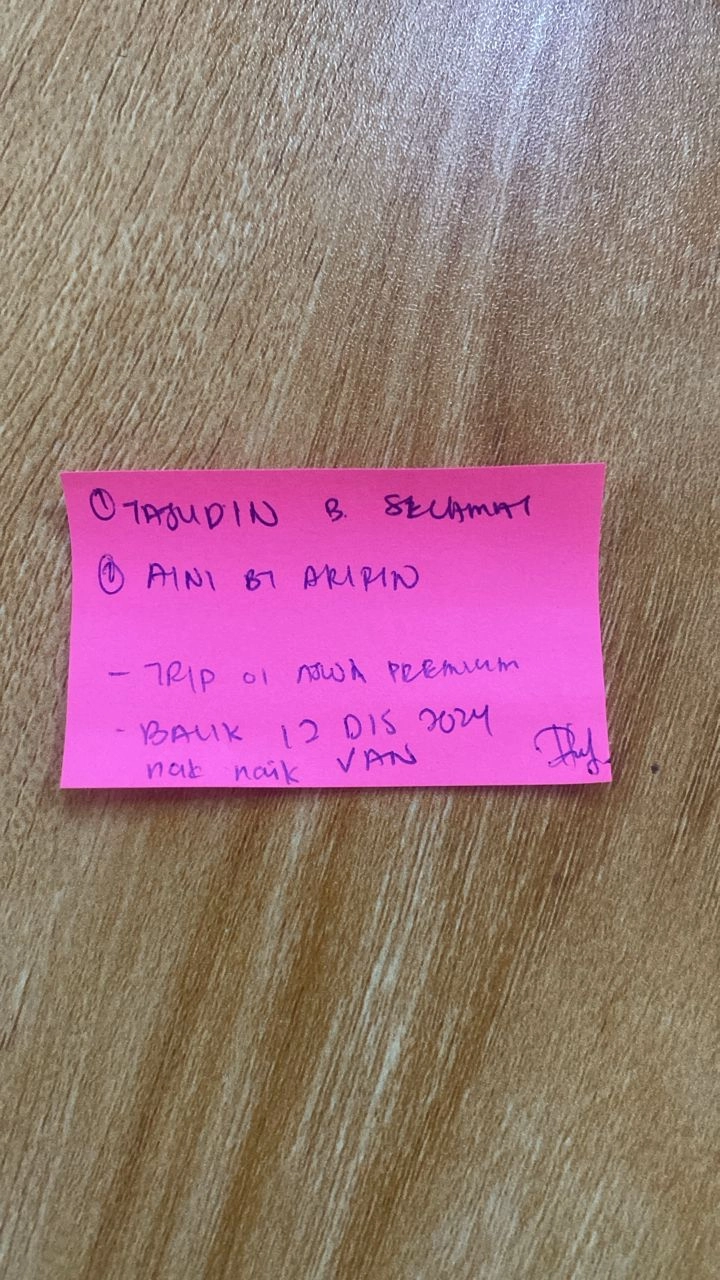 ① TAJUDIN B. SELAMAT
① AINI BT ARIPIN
- TRIP 01 AJWA PREMIUM
- BALIK 12 DIS 2024
nak naik VAN